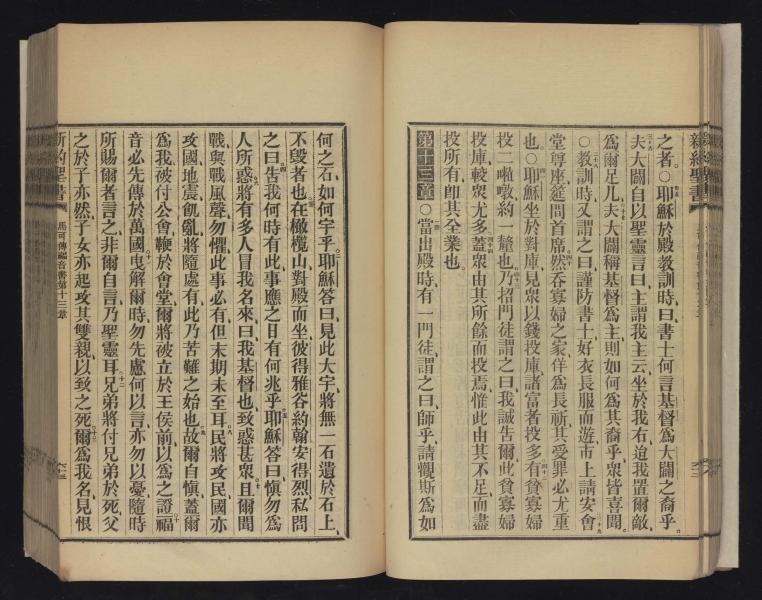 新約聖書
之者。○耶穌於殿教訓時、曰、書士何言基督爲大闢之裔乎、
夫大闢自以聖靈言曰、主謂我主云、坐於我右、迨我置爾敵
爲爾足几、夫大闢稱基督爲主、則如何爲其裔乎、眾皆喜聞、
○教訓時、又謂之曰、謹防書士、好衣長服而遊、市上請安、會
堂尊座、筵間首席、然吞寡婦之家、佯爲長祈、其受罪必尤重
也。○耶穌坐於對庫、見眾以錢投庫、諸富者投多、有貧寡婦
投二𠺕㗳、約一釐也、乃招門徒、謂之曰、我誠告爾、此貧寡婦
投庫、較眾尤多、蓋眾由其所餘而投焉、惟此由其不足、而盡
投所有、卽其全業也。
第十三章 ○當出殿時、有一門徒謂之曰、師乎、請觀斯爲如
何之石、如何宇乎、耶穌答曰、見此大宇、將無一石遺於石上、
不毀者也、在橄欖山、對殿而坐、彼得雅各約翰安得烈、私問
之曰、告我何時有此、事應之日、有何兆乎、耶穌答曰、愼勿爲
人所惑、將有多人冒我名來、曰、我基督也、致惑甚眾、且爾聞
戰與戰風聲、勿懼、此事必有、但末期未至耳、民將攻民、國亦
攻國、地震飢亂、將隨處有、此乃苦難之始也、故爾自愼、蓋爾
爲我被付公會、鞭於會堂、爾將被立於王侯前、以爲之證、福
音必先傳於萬國、曳解爾時、勿先慮何以言、亦勿以憂、隨時
所賜爾者言之、非爾自言、乃聖靈耳、兄弟將付兄弟於死、父
之於子亦然、子女亦起攻其雙親、以致之死、爾爲我名見恨
新約聖書 馬可傳福音書第十三章